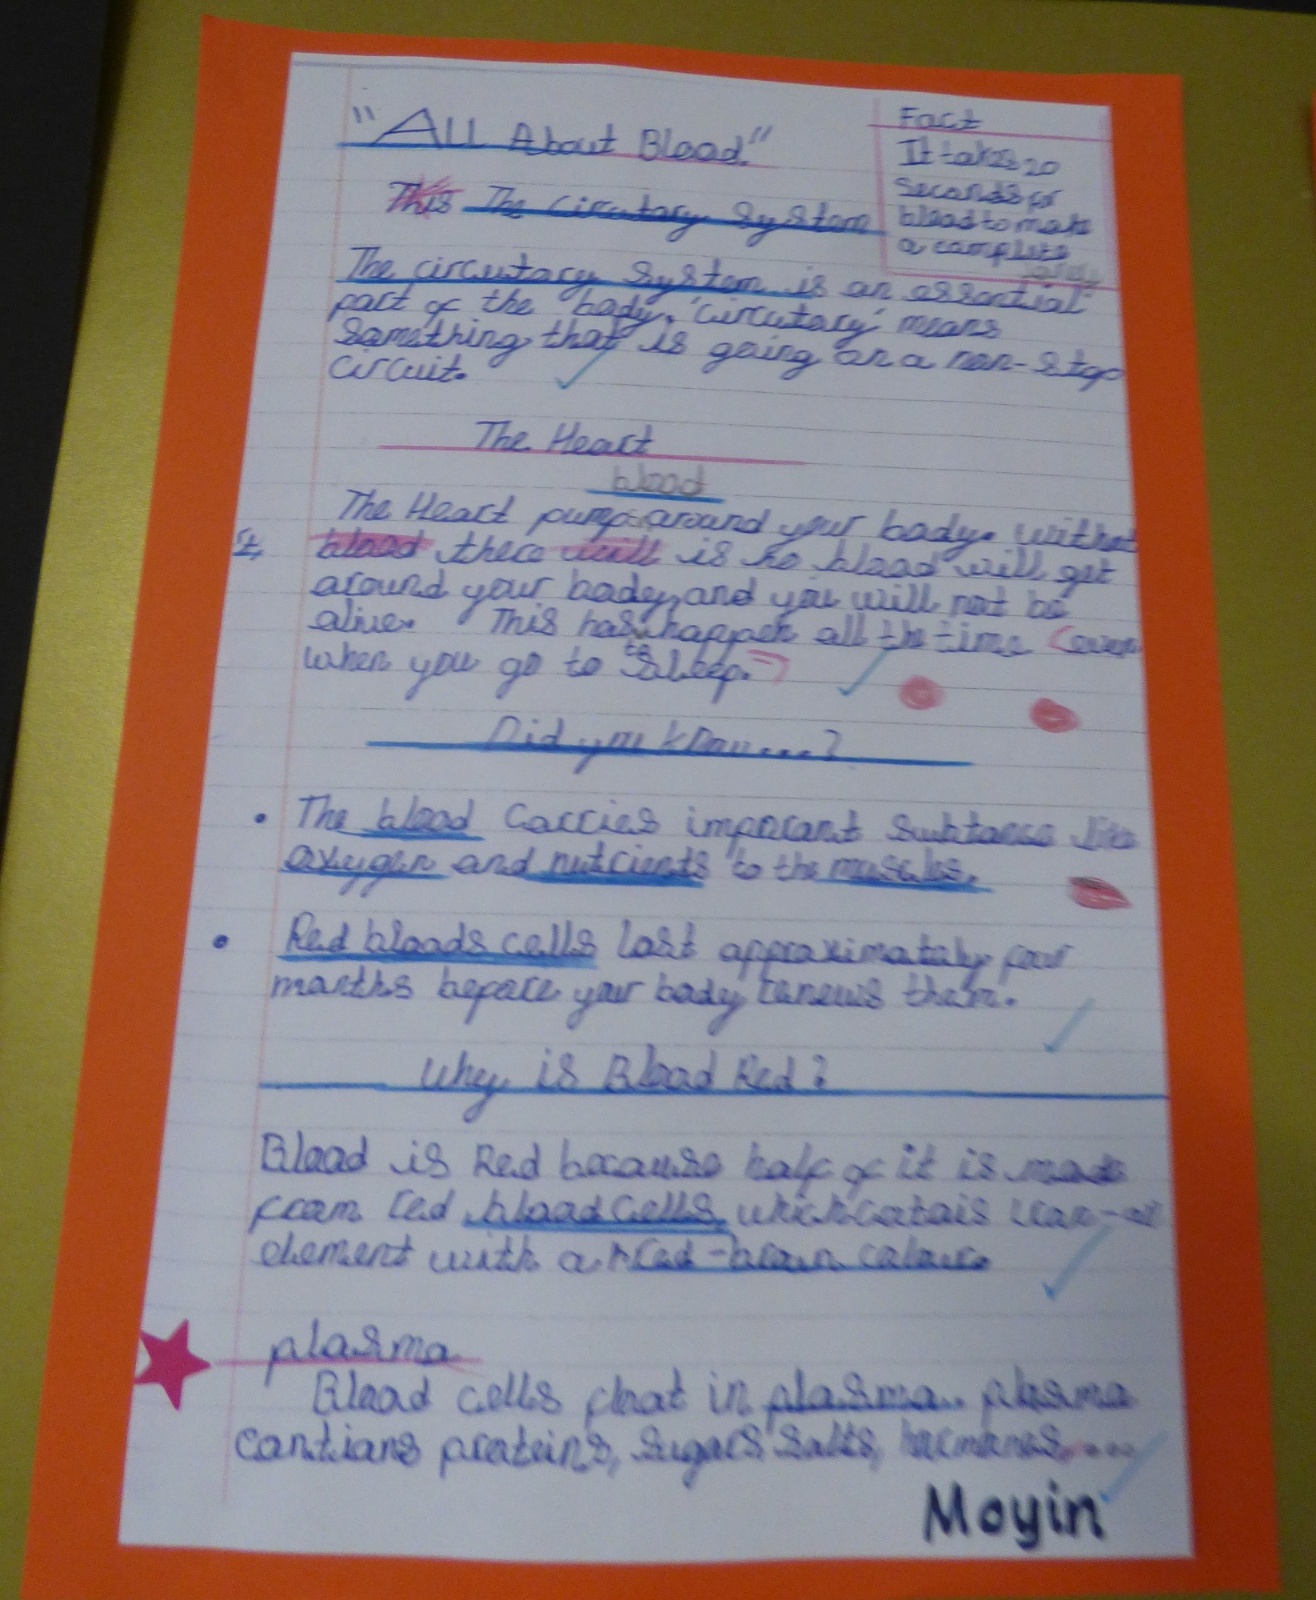 "All About Blood"
Fact
It takes 20
seconds for
blood to make
a complete
This The Circutary System
The circutary system is an essential
part of the body. 'circutary' means
something that is going on a non-stop
circuit.
The Heart
blood
The Heart pumps around your body. without
it, blood there will is no blood will get
around your body, and you will not be
alive. This has happen all the time (even
to
when you go to sleep.)
Did you know....?
• The blood carries imporant subtance like
oxygen and nutrients to the muscles.
• Red bloods cells last approximately four
months before your body renews them.
Why is Blood Red?
Blood is Red because half of it is made
from red blood cells, which catais iran-an
element with a red-brown colour.
plasma
Blood cells float in plasma. plasma
cantians proteins, sugars salts, hormones....
Moyin